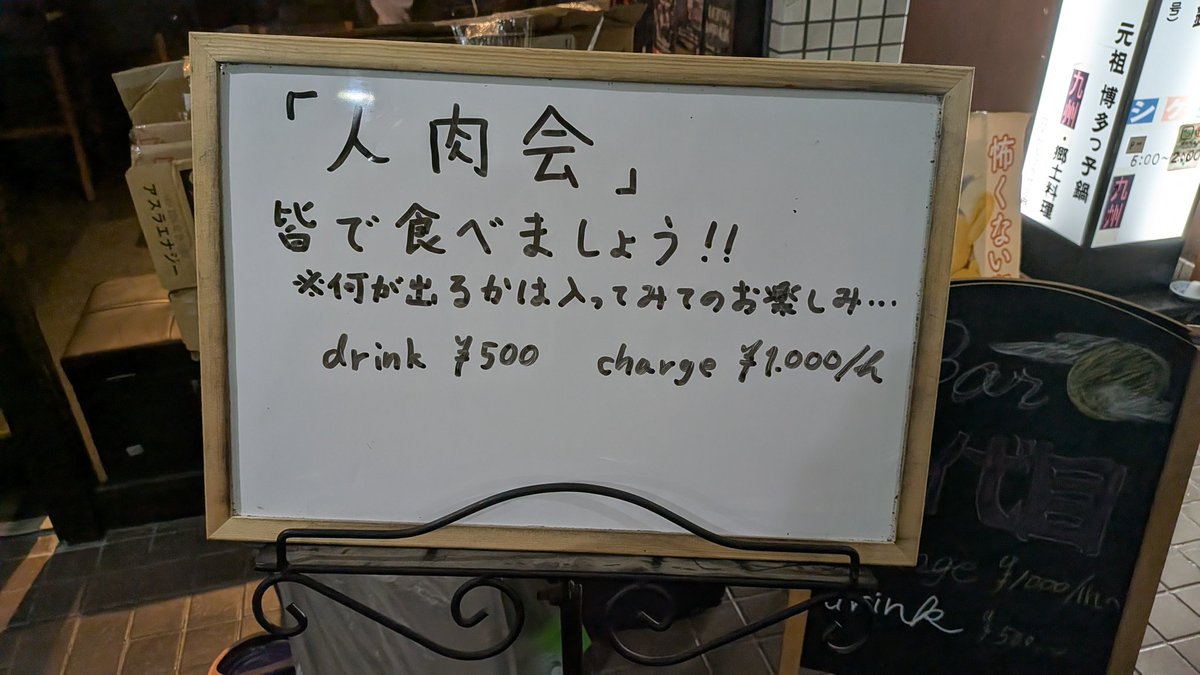 「人肉会」
皆で食べましょう!!
※何が出るかは入ってみてのお楽しみ…
drink ¥500 charge ¥1.000/h
アスラエナジー
怖くない
元祖 博多っ子鍋
九州・郷土料理
九州
6:00~
Bar
代目
¥1000/h
drink ¥500